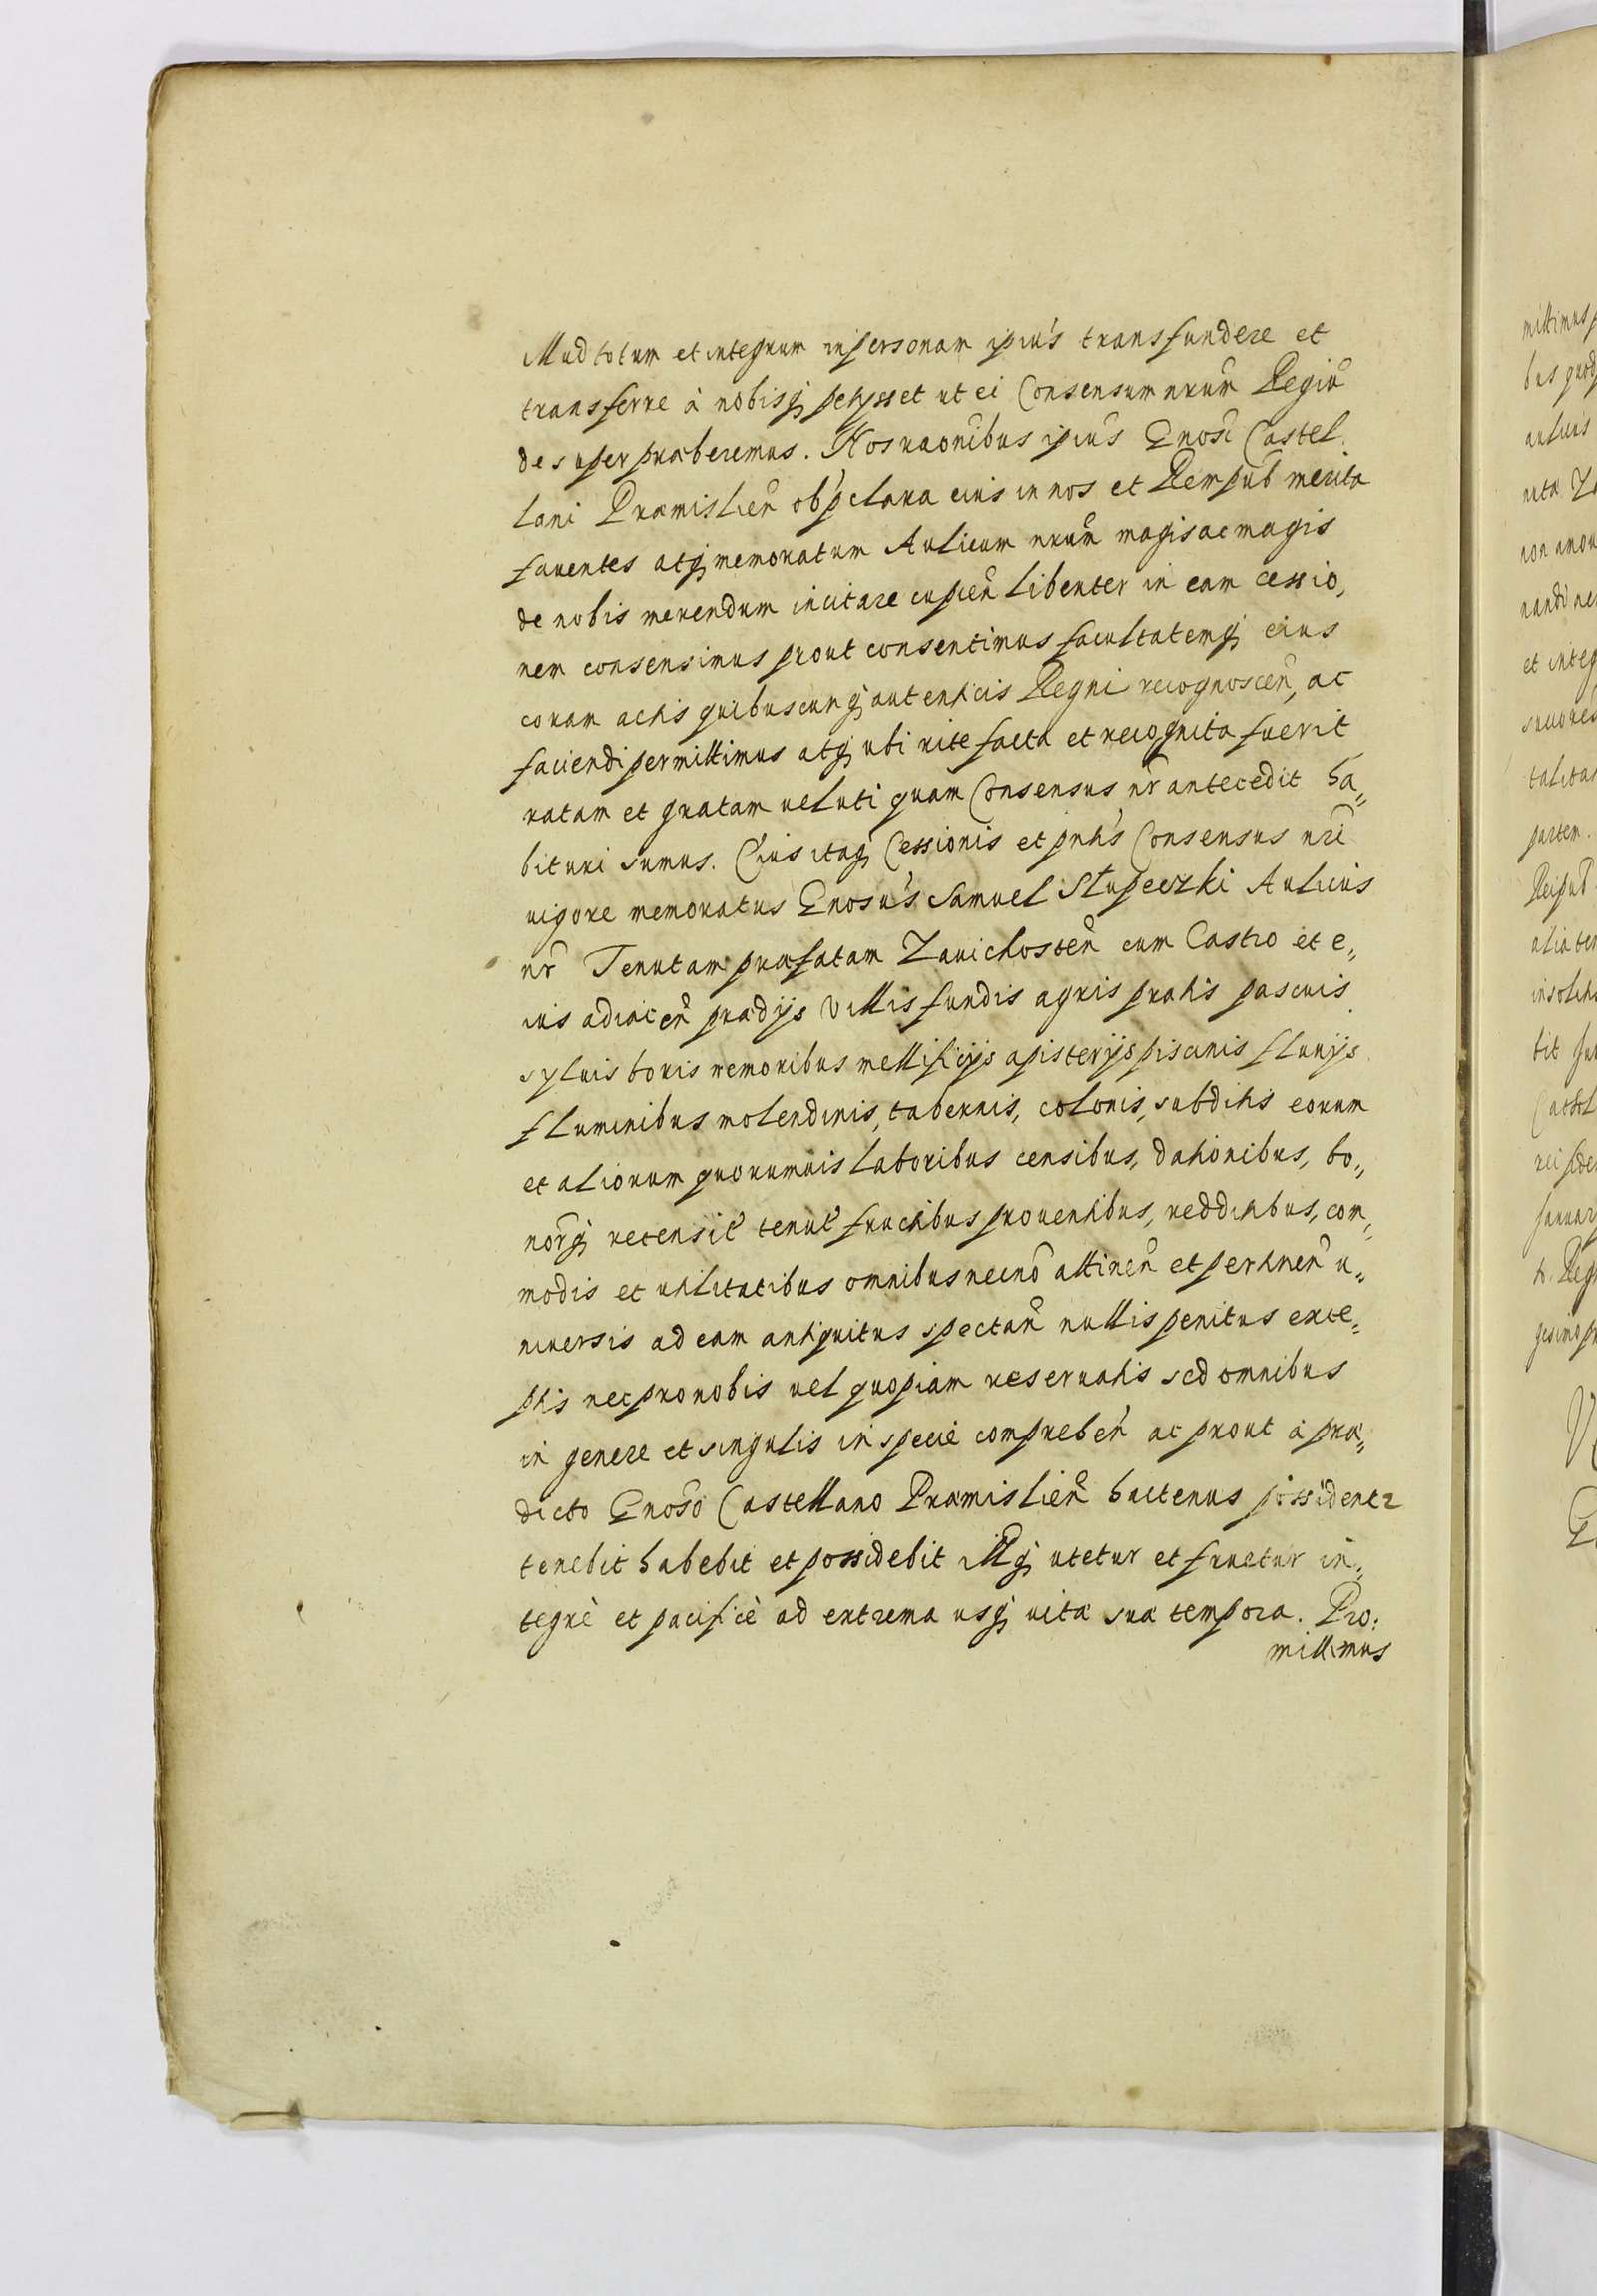 Illud totum et integrum in personam ipius transfundere et
transferre à nobisq petysset ut ei Consensum nrum Regiu
desuper præberemus. Nos
ipius Gnosi Castel
lani Præmislien ob pclara eius in nos et Rempub merita
fauentes atq memoratum Aulicum nrum magis ac magis
de nobis merendum incitare cupien libenter in eam cessio,
nem consensimus prout consentimus facultatemq eius
coram actis quibuscunq autenticis Regni recognoscen, ac
faciendi permittimus atq ubi rite facta et recognita fuerit
ratam et gratam ueluti quam Consensus nr antecedit ha„
bituri sumus. Cuius itaq Cessionis et pntis Consensus nri
uigore memoratus Gnosus Samuel Słupeczki Aulicus
nr Tenutam præfatam Zauichosten cum Castro et e„
ius adiacen prædijs Villis fundis agris pratis pascuis
syluis boris nemoribus mellificijs apisterijs piscinis fluuijs
fluminibus molendinis, tabernis, colonis, subditis eorum
et aliorum quorumuis laboribus censibus, dationibus, bo„
norq recensit tenut fructibus prouentibus, redditibus, com„
modis et utilitatibus omnibus necno attinen et pertinen u„
niuersis ad eam antiquitus spectan nullis penitus exce„
ptis nec pro nobis uel quopiam reseruatis sed omnibus
in genere et singulis in specie comprehen ac prout à præ„
dicto Gnoso Castellano Præmislien hactenus possidentr
tenebit habebit et possidebit illq utetur et fruetur in„
tegrè et pacificè ad extrema usq uitæ suæ tempora. Pro:
mittimus